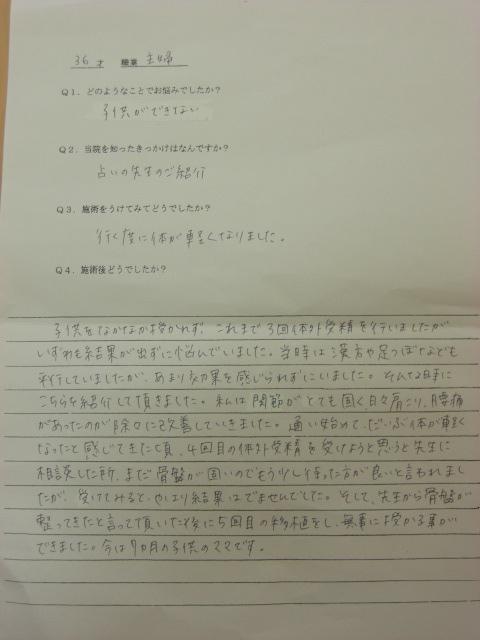 36才 職業 主婦
Q1．どのようなことでお悩みでしたか？
子供ができない
Q2．当院を知ったきっかけはなんですか？
占いの先生のご紹介
Q3．施術をうけてみてどうでしたか？
行く度に体が軽くなりました。
Q4．施術後どうでしたか？
子供をなかなか授かれず、これまで3回体外受精を行いましたが
いずれも結果が出ずに悩んでいました。当時は漢方や足つぼなども
平行していましたが、あまり効果を感じられずにいました。そんな時に
こちらを紹介して頂きました。私は関節がとても固く、日々肩こり、腰痛
があったのが徐々に改善していきました。通い始めて、だいぶ体が軽く
なったと感じてきた頃、4回目の体外受精を受けようと思うと先生に
相談した所、まだ骨盤が固いのでもう少し待った方が良いと言われまし
たが、受けてみると、やはり結果はでませんでした。そして、先生から骨盤が
整ってきたと言って頂いた後に5回目の移植をし、無事に授かる事が
できました。今は7カ月の子供のママです。